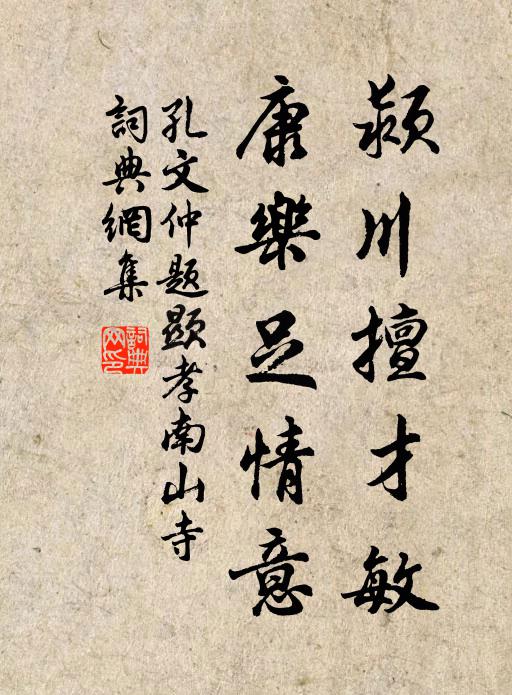 潁川擅才敏
康樂足情意
孔文仲題顕孝南山寺
詞典網集
詞典網印